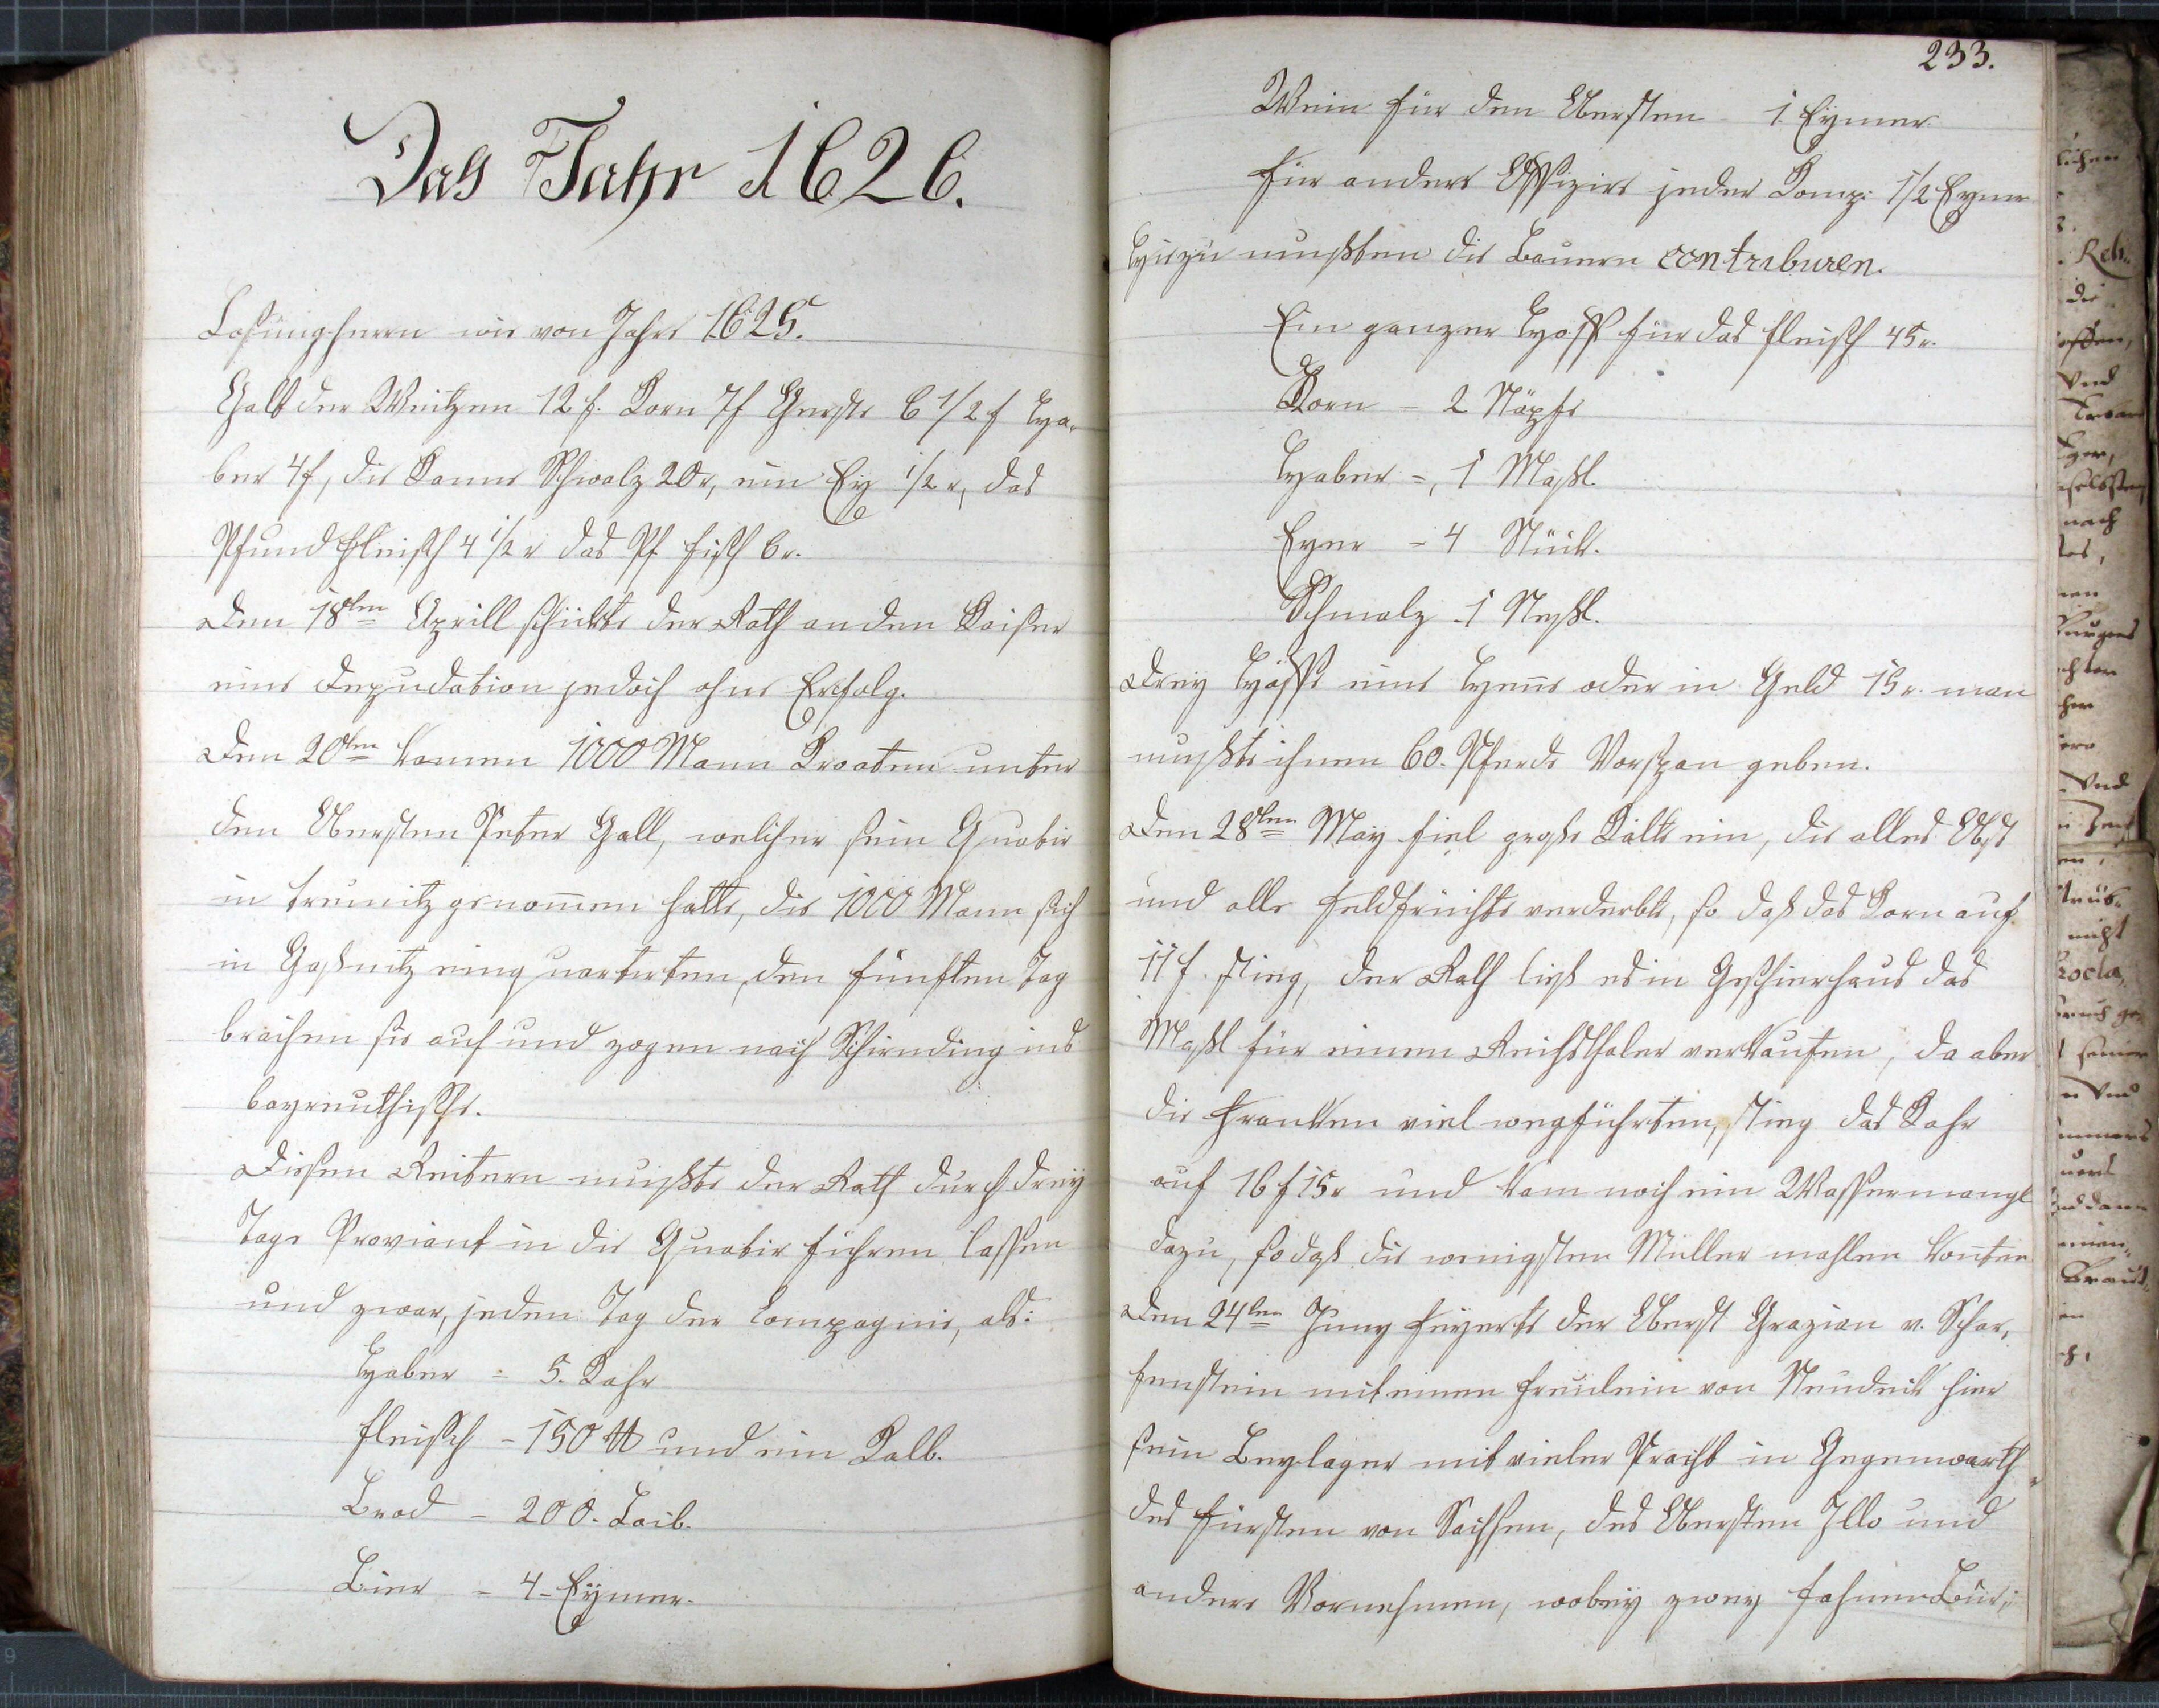 Das Jahr 1626.
Losungherrn wie von Jahre 1625.
Galt der Weitzen 12 f. Korn 7f Gerste 6 1/2 f Ha-
ber 4f, die Kanne Schmalz 20r, ein Ey 1/2 r, das
Pfund Fleisch 4 1/2 r das Pf Fisch 6r.
Den 18ten Aprill schickte der Rath an den Kaiser
eine Depudation jedoch ohne Erfolg.
Den 20ten kamen 1000 Mann Kroaten unter
den Obersten Peter Gall, welcher sein Quatir
in Treunitz genom̄en hatte, die 1000 Mann sich
in Gaßnitz einquartirten, den fünften Tag
brachen sie auf und zogen nach Schirnding ins
bayreuthische.
Diesen Reitern mußte der Rath durch drey
Tage Proviant in die Quatir führen lassen
und zwar, jeden Tag der Compagnie, als:
Haber = 5. Kahr
Fleisch - 150 ℔ und ein Kalb.
Brod - 200. Laib.
Bier - 4 - Eymer.
233.
Wein für den Obersten - 1. Eymer
für andere Offizire jeder Komp: 1/2 Eymer
Hiezu mußten die Bauern contriburen.
Ein ganzer Hoff für das Fleisch 45r.
Korn - 2 Näpfe
Haber =, 1 Maßl.
Eyer - 4 Stück.
Schmalz - 1 Neßl.
Drey Höffe eine Hen̄e oder in Geld 15r. man
mußte ihnen 60. Pferde Vorspan geben.
Den 28ten May fiel große Kälte ein, die alles Obst
und alle Feldfrüchte verderbte, so daß das Korn auf
11 f. stieg, der Rath ließ es in Geschierhaus das
Maßl für einen Reichsthaler verkaufen, da aber
die Franken viel wegführten, stieg das Kahr
auf 16 f 15r und kam noch ein Wassermangl
dazu, so daß die wenigsten Müller mahlen kon̄ten
Den 24ten Juny feyerte der Oberst Grazian v. Schar,
fenstein mit einen Freulein von Neudeck hier
sein Beylager mit vieler Pracht in Gegenwarth
des Fürsten von Sachsen, des Obersten Illo und
andere Vornehmen, wobey zwey Fahnen Bür,